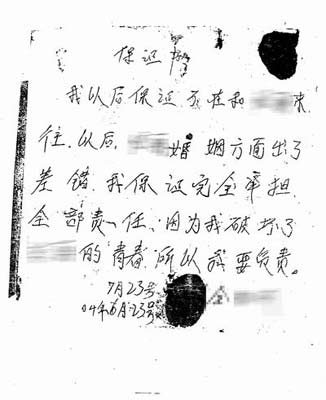 保证
我以后保证不在和 来
往.以后, 婚姻方面出了
差错.我保证完全承担
全部责任,因为我破坏了
的青春.所以我要负责。
7月23号
04年6月23号